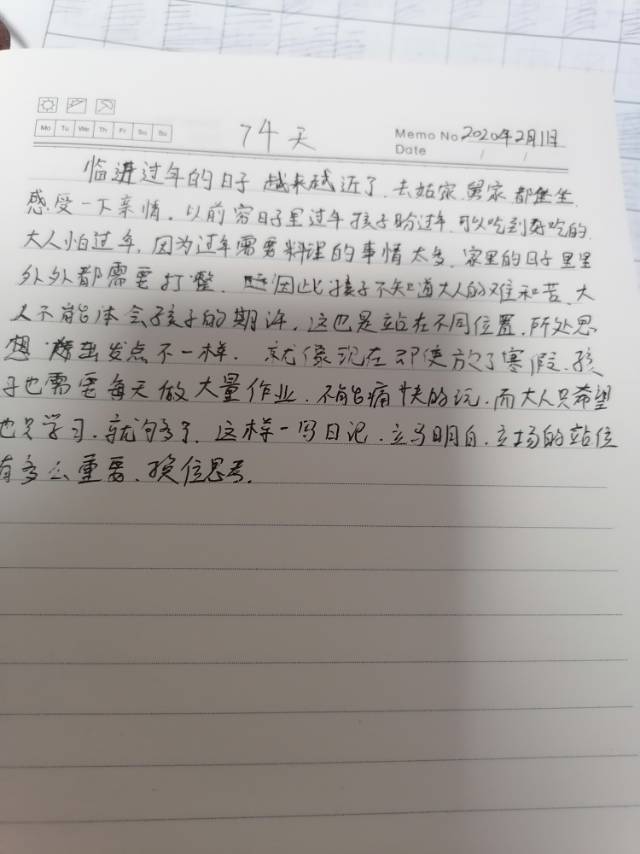 Mo Tu We Th Fr Sa Su
74天
Memo No 2020年2月1日
Date / /
临进过年的日子越来越近了、去姑家舅家都坐坐、
感受一下亲情。以前穷日子里过年孩子盼过年可以吃到好吃的、
大人怕过年、因为过年需要料理的事情太多、家里的日子里里
外外都需要打整、因此孩子不知道大人的难和苦、大
人不能体会孩子的期许、这也是站在不同位置、所处思
想 出发点不一样、就像现在即使放了寒假、孩
子也需要每天做大量作业、不能痛快的玩、而大人只希望
也只学习、就够了、这样一写日记、立马明白、立场的站位
有多么重要、换位思考、